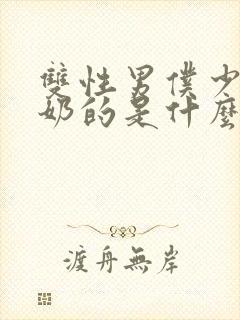 雙性男僕少
奶的是什麼
渡舟無岸